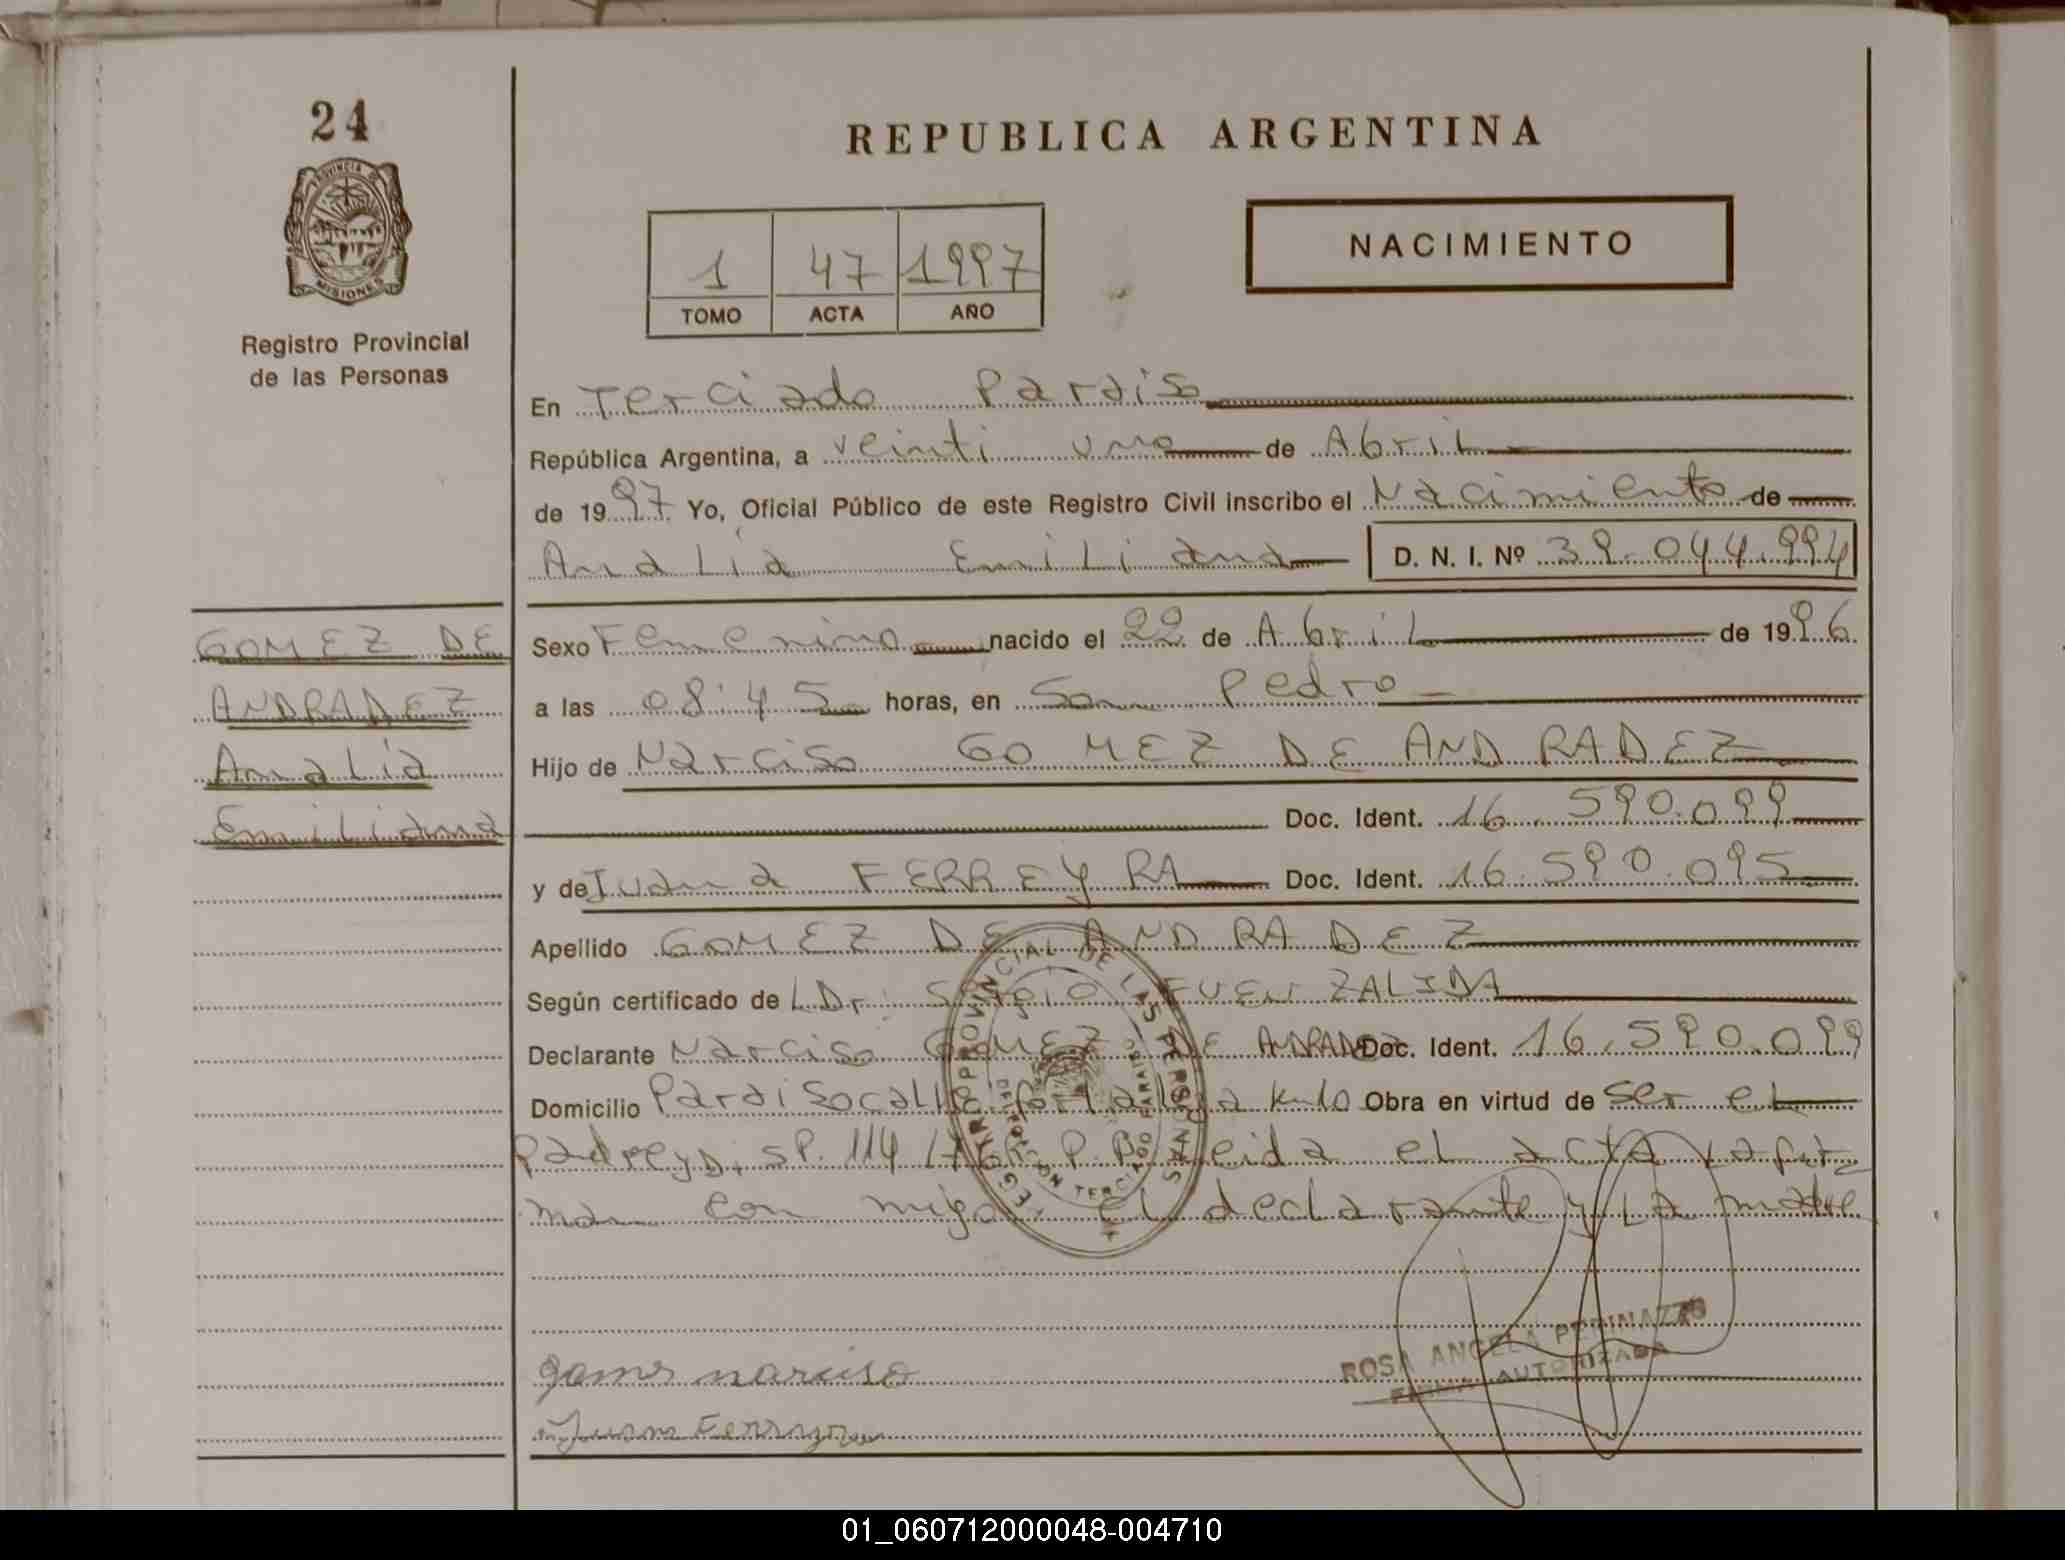 24
PROVINCIA DE
MISIONES
Registro Provincial
de las Personas
REPUBLICA ARGENTINA
1 47 1997
TOMO ACTA AÑO
NACIMIENTO
En Terciado Paraiso
República Argentina, a veinti uno de Abril
de 1997 Yo, Oficial Público de este Registro Civil inscribo el Nacimiento de
Analía Emiliana D. N. I. Nº 39.044.994
GOMEZ DE
ANDRADEZ
Analía
Emiliana
Sexo Femenino nacido el 22 de Abril de 1996
a las 08:45 horas, en San Pedro
Hijo de Narciso GOMEZ DE ANDRADEZ
Doc. Ident. 16.590.099
y de Juana FERREYRA Doc. Ident. 16.590.095
Apellido GOMEZ DE ANDRADEZ
Según certificado de L Dr. Sergio FUENZALIDA
Declarante Narciso GOMEZ DE ANDRADEZ Doc. Ident. 16.590.099
Domicilio Paraiso Obra en virtud de ser el
padre y D. SP. 114 Leida el acta la fir
man con migo el declarante y La madre
REGISTRO PROVINCIAL DE LAS PERSONAS
ROSA ANGELA PERINAZZO
FIRMA AUTORIZADA
gomes narciso
Juana Ferreyra
01_060712000048-004710